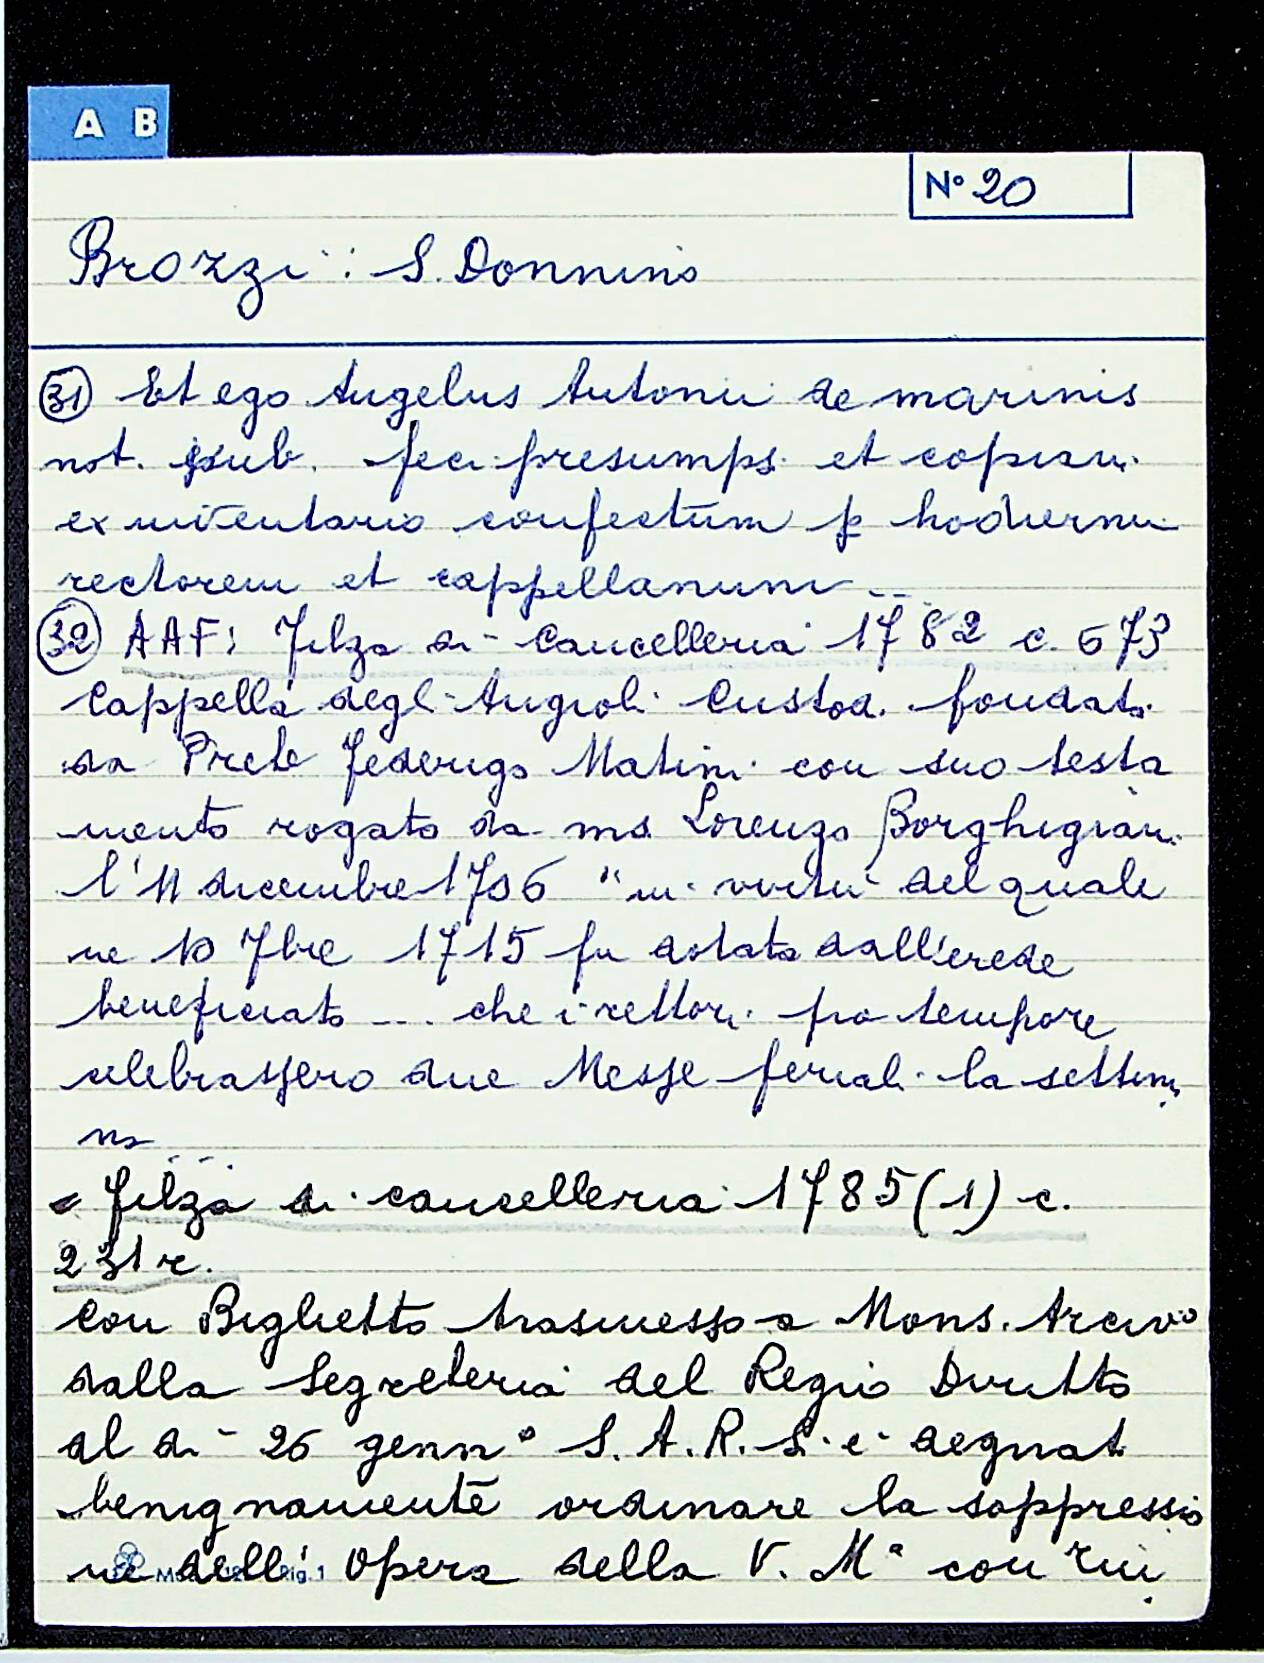 A B
N° 20
Brozzi: S. Donnino
31 Et ego Angelus Antonii de marinis
not. pub. feci presumpsi et copiavi
ex inventario confectum p hodiernu
rectorem et cappellanum ...
32 AAF: Filza di Cancelleria 1782 c. 673
Cappella degl'Angioli Custodi fondata
da Prete Federigo Matini con suo testa
mento rogato da ms. Lorenzo Borghigiani
l'11 dicembre 1706 "in virtù del quale
ne 10 7bre 1715 fu dotata dall'erede
beneficiato ... che i rettori pro tempore
celebrassero due Messe feriali la settima
na ...
= Filza di cancelleria 1785 (1) c.
231 r.
con Biglietto trasmesso a Mons. Arcivo
dalla Segreteria del Regio Diritto
al di 26 genn° S. A. R. S. è degnat
benignamente ordinare la soppressio
ne dell' Opera della V. Mª con
Rig. 1